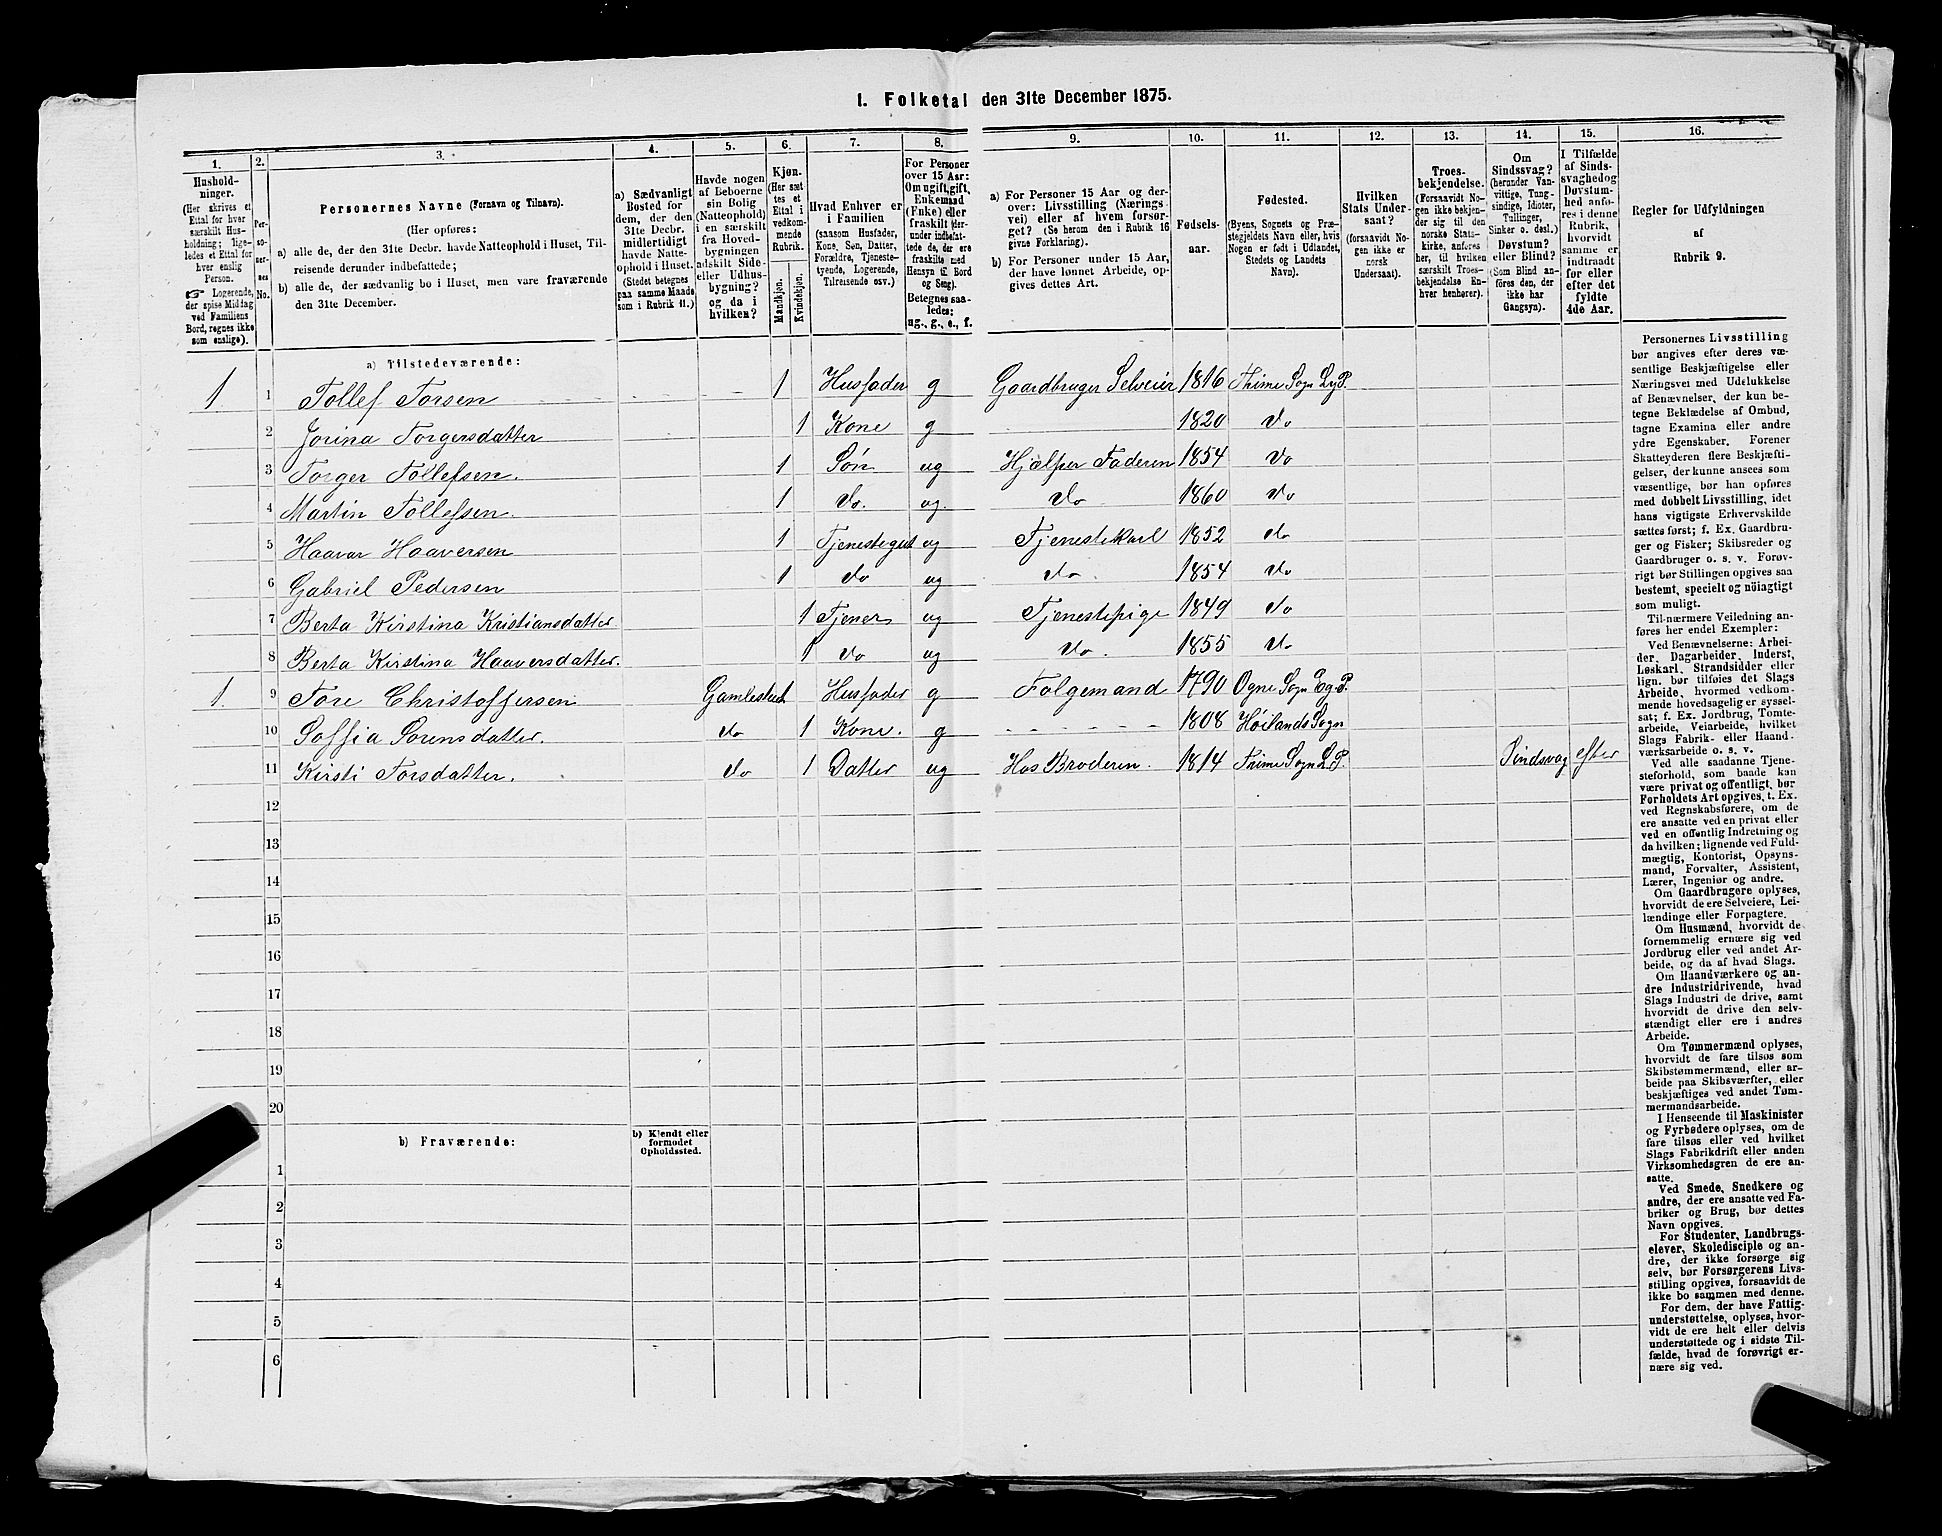 1. Folketal den 31te December 1875.
1.
2.
3.
4.
5.
6.
7.
8.
9.
10.
11.
12.
13.
14.
15.
16.
Hushold-
ninger.
(Her skrives et
Ettal for hver
særskilt Hus-
holdning; lige-
ledes et Ettal for
hver enslig
Person.
☞ Logerende,
der spise Middag
ved Familiens
Bord, regnes ikke
som enslige).
Per-
so-
ner-
nes
No.
Personernes Navne (Fornavn og Tilnavn).
(Her opføres:
a) alle de, der den 31te Decbr. havde Natteophold i Huset, Til-
reisende derunder indbefattede;
b) alle de, der sædvanlig bo i Huset, men vare fraværende
den 31te December.
a) Sædvanligt
Bosted for
dem, der den
31te Decbr.
midlertidigt
havde Natte-
ophold i Huset.
(Stedet betegnes
paa samme Maade
som i Rubrik 11.)
Havde nogen
af Beboerne
sin Bolig
(Natteophold)
i en særskilt
fra Hoved-
bygningen
adskilt Side-
eller Udhus-
bygning?
og da i
hvilken?
Kjøn.
(Her sæt-
tes et
Ettal i
vedkom-
mende
Rubrik.
Mandkjøn.
Kvindekjøn.
Hvad Enhver er
i Familien
(saasom Husfader,
Kone, Søn, Datter,
Forældre, Tjeneste-
tyende, Logerende,
Tilreisende osv.)
For Personer
over 15 Aar:
Om ugift, gift,
Enkemand
(Enke) eller
fraskilt (der-
under indbefat-
tede de, der ere
fraskilte med
Hensyn til Bord
og Seng).
Betegnes saa-
ledes:
ug., g., e., f.
a) For Personer 15 Aar og der-
over: Livsstilling (Nærings-
vei) eller af hvem forsør-
get? (Se herom den i Rubrik 16
givne Forklaring).
b) For Personer under 15 Aar,
der have lønnet Arbeide, op-
gives dettes Art.
Fødsels-
aar.
Fødested.
(Byens, Sognets og Præ-
stegjeldets Navn eller, hvis
Nogen er født i Udlandet,
Stedets og Landets
Navn).
Hvilken
Stats Under-
saat?
(forsaavidt No-
gen ikke er
norsk
Undersaat).
Troes-
bekjendelse.
(Forsaavidt No-
gen ikke bekjen-
der sig til den
norske Stats-
kirke, anføres
her, til hvilken
særskilt Troes-
bekjendelse En-
hver henhører).
Om
Sindssvag?
(herunder Van-
vittige, Tung-
sindige, Idioter,
Tullinger,
Sinker o. desl.)
Døvstum?
eller Blind?
(Som Blind an-
føres den, der
ikke har
Gangsyn).
I Tilfælde
af Sinds-
svaghed og
Døvstum-
hed anfø-
res i denne
Rubrik,
hvorvidt
samme er
indtraadt
før eller
efter det
fyldte
4de Aar.
Regler for Udfyldningen
af
Rubrik 9.
a) Tilstedeværende:
1 1 Tollef Torsen 1 Husfader g Gaardbruger Selveier 1816 Thime Sogn Ly P.
2 Jorina Torgersdatter 1 Kone g 1820 do
3 Torger Tollefsen. 1 Søn ug Hjælper Faderen 1854 do
4 Martin Tollefsen. 1 do. ug. do 1860 do
5 Haavar Haaversen 1 Tjenestegut ug Tjenestekarl 1852 do
6 Gabriel Pedersen 1 do ug do. 1854 do
7 Berta Kirstina Kristiansdatter. 1 Tjener ug Tjenestepige 1849 do
8 Berta Kirstina Haaversdatter. 1 do ug do. 1855 do
1 9 Tore Christoffersen Husfader g Folgemand 1790 Ogne Sogn Eg. P.
10 Soffia Sorensdatter. do 1 Kone. g 1808 Höilands Sogn
11 Kirsti Torsdatter. do 1 Datter ug Hos Broderen. 1814 Thime Sogn L. P. Sindsvag efter
12
13
14
15
16
17
18
19
20
b) Fraværende:
b) Kjendt eller
formodet
Opholdssted.
1
2
3
4
5
6
Personernes Livsstilling
bør angives efter deres væ-
sentlige Beskjæftigelse eller
Næringsvei med Udelukkelse
af Benævnelser, der kun be-
tegne Beklædelse af Ombud,
tagne Examina eller andre
ydre Egenskaber. Forener
Skatteyderen flere Beskjæfti-
gelser, der kunne ansees som
væsentlige, bør han opføres
med dobbelt Livsstilling, idet
hans vigtigste Erhvervskilde
sættes først; f. Ex. Gaardbru-
ger og Fisker; Skibsreder og
Gaardbruger o. s. v. Forøv-
rigt bør Stillingen opgives saa
bestemt, specielt og nöiagtigt
som muligt.
Til nærmere Veiledning an-
føres her endel Exempler:
Ved Benævnelserne: Arbei-
der, Dagarbeider, Inderst,
Løskarl, Strandsidder eller
lign. bør tilføies det Slags
Arbeide, hvormed vedkom-
mende hovedsagelig er syssel-
sat; f. Ex. Jordbrug, Tomte-
arbeide, Veiarbeide, hvilket
Slags Fabrik- eller Haand-
værksarbeide o. s. v.
Ved alle saadanne Tjene-
steforhold, som baade kan
være privat og offentligt, bør
Forholdets Art opgives, t. Ex.
ved Regnskabsførere, om de
ere ansatte ved en privat eller
ved en offentlig Indretning og
da hvilken; lignende ved Fuld-
mægtig, Kontorist, Opsyns-
mand, Forvalter, Assistent,
Lærer, Ingeniør og andre.
Om Gaardbrugere oplyses,
hvorvidt de ere Selveiere, Lei-
lændinge eller Forpagtere.
Om Husmænd, hvorvidt de
fornemmelig ernære sig ved
Jordbrug eller ved andet Ar-
beide, og da af hvad Slags.
Om Haandværkere og an-
dre Industridrivende, hvad
Slags Industri de drive, samt
hvorvidt de drive den selv-
stændigt eller ere i andres
Arbeide.
Om Tømmermænd oplyses,
hvorvidt de fare tilsøs som
Skibstømmermænd, eller ar-
beide paa Skibsværfter, eller
beskjæftiges ved andet Tøm-
mermandsarbeide.
I Henseende til Maskinister
og Fyrbødere oplyses, om de
fare tilsøs eller ved hvilket
Slags Fabrikdrift eller anden
Virksomhedsgren de ere an-
satte.
Ved Smede, Snedkere og
andre, der ere ansatte ved Fa-
briker og Brug, bør dettes
Navn opgives.
For Studenter, Landbrugs-
elever, Skoledisciple og an-
dre, der ikke forsørge sig
selv, bør Forsørgerens Livs-
stilling opgives, forsaavidt de
ikke bo sammen med denne.
For dem, der have Fattig-
understøttelse, oplyses, hvor-
vidt de ere helt eller delvis
understøttede og i sidste Til-
fælde, hvad de forøvrigt er-
nære sig ved.